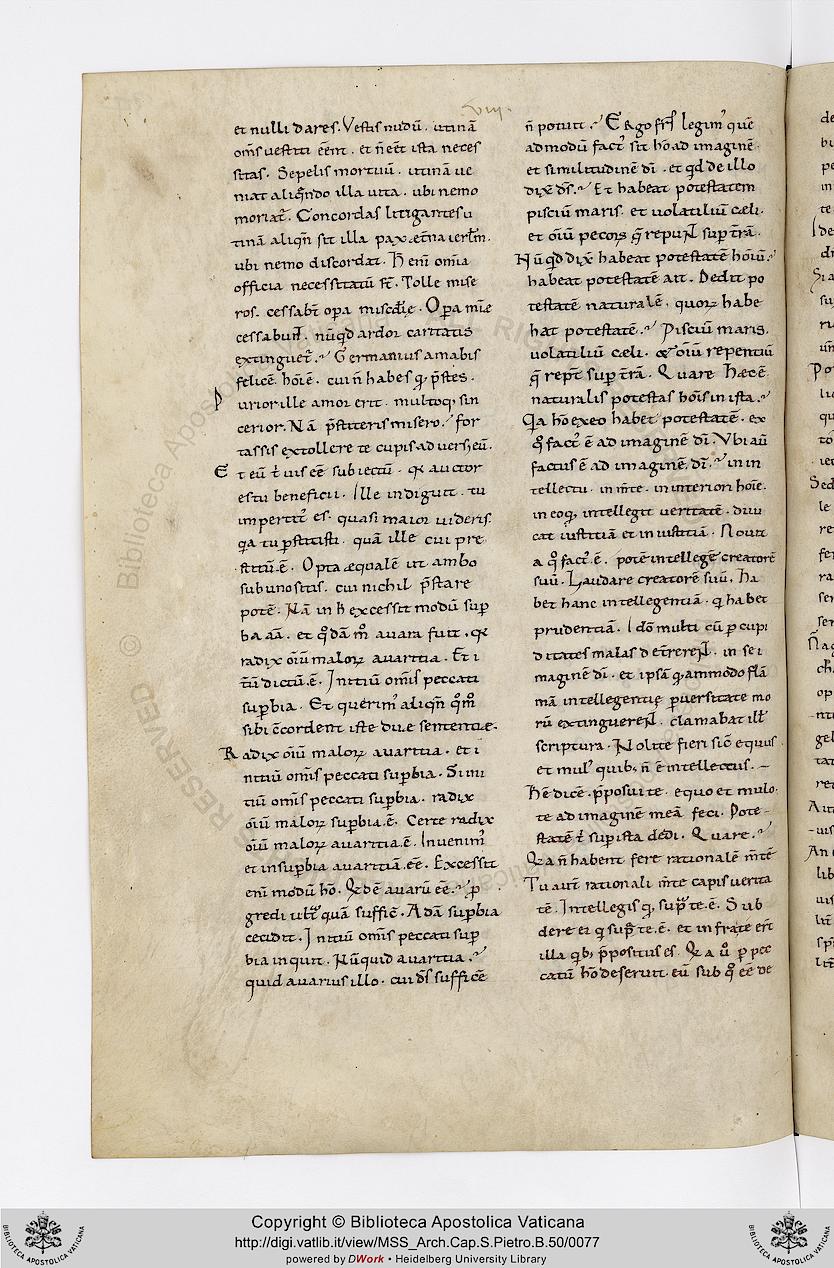 VIII.
et nulli dares. Vestis nudū. utinā
om̄s vestiti eēnt. et n̄ eēt ista neces
sitas. Sepelis mortuū. utinā ve
niat aliqn̄do illa vita. ubi nemo
moriat̄. Concordas litigantes u
tinā aliqn̄ sit illa pax ęt̄na ierl̄m.
ubi nemo discordat. H̄ eni om̄ia
officia necessitatū st̄. Tolle mise
ros. cessabt̄ opa mis̄cdię. Opa mīe
cessabuN̄. nūqd ardor caritatis
extinguet̄. Germanius amabis
felicē. hoīe. cui n̄ habes q p̄stes.
Purior ille amor erit. multoq; sin
cerior. Nā p̄stiteris misero. for
tassis extollere te cupis adversꝰ eū.
Et eū t̄ vis eē subiectū. qi auctor
es tu beneficii. Ille indiguit. tu
impertit̄ es. quasi maior videris.
qa tu p̄stitisti. quā ille cui pre
stitū.ē. Opta ęqualē ut ambo
sub uno sitis. cui nichil p̄stare
potē. Nā in h̄ excessit modū sup
ba aā. et qdā m̄ avara fuit. qi
radix oīū maloꝝ avaritia. Et i
tū dictū.ē. Initiū om̄is peccati
supbia. Et querim̄ aliqn̄ qm̄
sibi c̄cordent iste due sententię.
Radix oīū maloꝝ avaritia. et i
nitiū om̄is peccati supbia. Si ini
tiū om̄is peccati supbia. radix
oīū maloꝝ supbia.ē. Certe radix
oīū maloꝝ avaritia.ē. Invenim̄
et in supbia avaritiā.eē. Excessit
eni modū hō. Qd ē avarū eē. p
gredi ult̄ quā sufficē. Adā supbia
cecidit. Initiū om̄is peccati sup
bia inquit. Nūquid avaritia.
quid avarius illo. cui ds̄ sufficē
n̄ potuit. Ergo frs̄ legim̄ que
admodū fact̄ sit hō ad imaginē
et similitudinē dī. et qd de illo
dixē ds̄. Et habeat potestatem
pisciū maris. et volatiliū cęli.
et oīū pecoꝝ q̄ repuN̄ sup t̄rā.
Nūqd dix̄ habeat potestatē hoīū.
habeat potestatē ait. Dedit po
testatē naturalē. quoꝝ habe
hat potestatē. Pisciū maris.
volatiliū cęli. & oīū repentiū
q̄ rept̄ sup t̄rā. Quare hęc ē
naturalis potestas hoīs in ista.
Qa hō ex eo habet potestatē. ex
q̊ fact̄ ē ad imaginē dī. Ubi aū
factus ē ad imaginē. dī. in in
tellectu. in m̄te. in interiori hoīe.
in eo q; intellegit veritatē. diiu
cat iustitiā et iniustitiā. Novit
a q̊ fact̄.ē. potē intellegē creatorē
suū. Laudare creatorē suū. Ha
bet hanc intellegentiā. q habet
prudentiā. Idō multi cū p cupi
ditates malas det̄rereN̄. in se i
maginē dī. et ipsā q;ammodo flā
mā intellegentię pversitate mo
rū extinguereN̄. clamabat ill̄
scriptura. Nolite fieri sic̄ equus
et mul̄ quib; n̄ ē intellectus.
H̄ ē dicē. p̄posui te equo et mulo.
te ad imaginē meā feci. Pote
statē t̄ sup ista dedi. Quare.
Qa n̄ habent fere rationalē m̄tē
Tu aut̄ rationali m̄te capis verita
tē. Intellegis q; sup̄ te.ē. Sub
dere ei q sup̄ te.ē. et infra te ert̄
illa qib; p̄positus es. Qa v̊ p pec
catū hō deseruit. eū sub q̊ eē de
Copyright © Biblioteca Apostolica Vaticana
http://digi.vatlib.it/view/MSS_Arch.Cap.S.Pietro.B.50/0077
powered by DWork • Heidelberg University Library